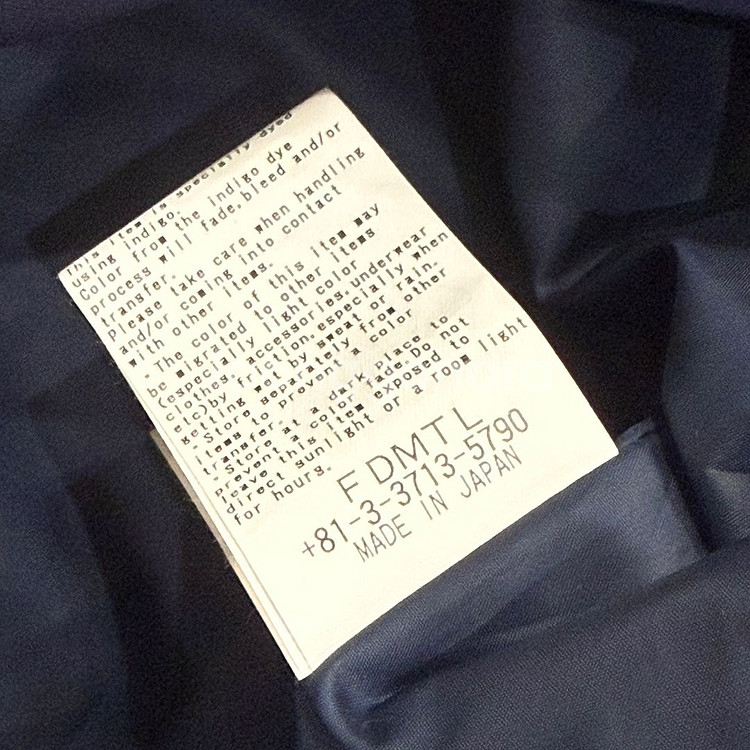 This item is specially dyed
using indigo.
Color from the indigo dye
process will fade,bleed and/or
transfer.
Please take care when handling
and/or coming into contact
with other items.
・The color of this item may
be migrated to other items
(especially light color
clothes, accessories,underwear
etc)by friction,especially when
getting wet by sweat or rain.
・Store separately from other
items to prevent a color
transfer.
・Store at a dark place to
prevent a color fade.Do not
leave this item exposed to
direct sunlight or a room light
for hours.
FDMTL
+81-3-3713-5790
MADE IN JAPAN